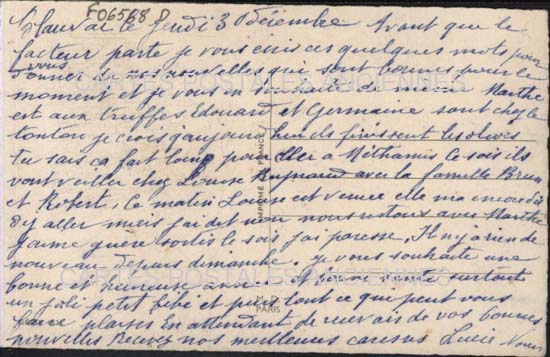 F06568 D
Blauvac le Jeudi 30 décembre Avant que le
facteur parte je vous écris ces quelques mots pour
vous
donner de nos nouvelles qui sont bonnes pour le
moment et je vous en souhaite de même Marthe
est aux truffes Edouard et Germaine sont chez le
tonton je crois qu'aujourd'hui ils finissent les olives
Tu sais ça fait loin pour aller à Méthamis Ce soir ils
vont veiller chez Louise Raymand avec la famille Brun
et Robert, ce matin Louise est venue elle m'a encore dit
d'y aller mais j'ai dit non nous restons avec Marthe
j'aime guère sortir le soir j'ai paresse, Il n'y a rien de
nouveau depuis dimanche. je vous souhaite une
bonne et heureuse année et bonne santé surtout
un joli petit bébé et puis tout ce qui peut vous
faire plaisir En attendant de recevoir de vos bonnes
nouvelles Recevez nos meilleures caresses Lucie
IMPRIMÉ EN FRANCE
PARIS
CARTES POSTALES ANCIENNES
CARTES POSTALES ANCIENNES